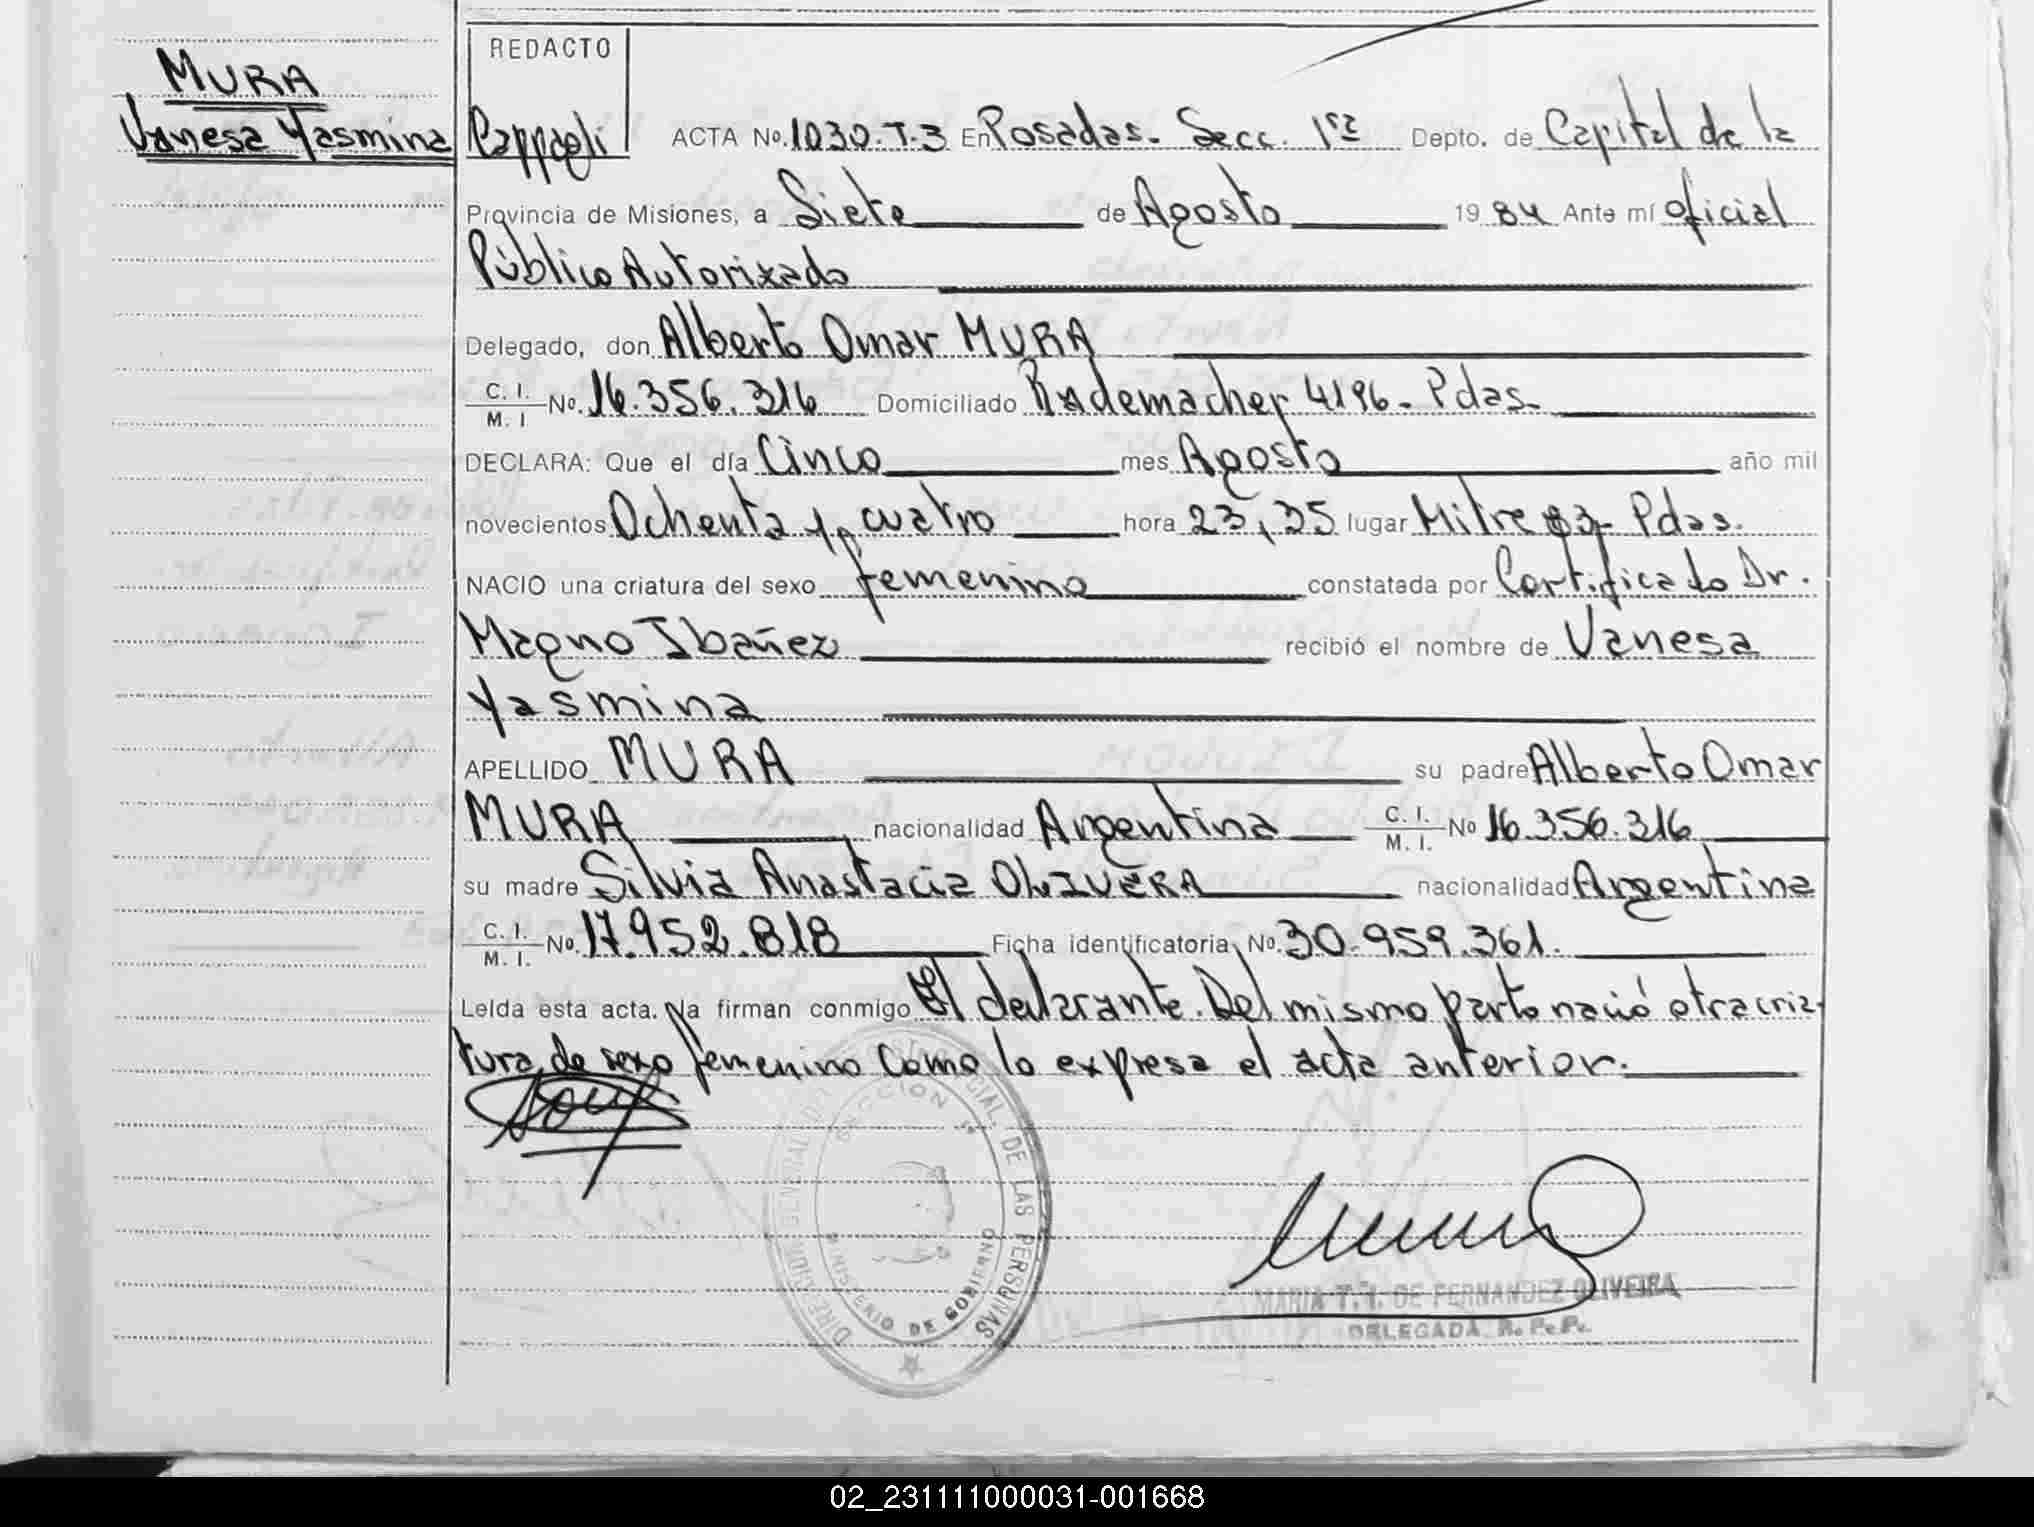 MURA
Vanesa Yasmina
REDACTO
Cappagli
ACTA No. 1030-T-3 En Posadas- Secc. 1ra Depto. de Capital de la
Provincia de Misiones, a Siete de Agosto 1984 Ante mí oficial
Público Autorizado
Delegado, don Alberto Omar MURA
C. I. M. I No. 16.356.316 Domiciliado Rademacher 4196- Pdas-
DECLARA: Que el día Cinco mes Agosto año mil
novecientos Ochenta y cuatro hora 23,35 lugar Mitre 83- Pdas.
NACIO una criatura del sexo femenino constatada por Certificado Dr.
Magno Ibañez recibió el nombre de Vanesa
Yasmina
APELLIDO MURA su padre Alberto Omar
MURA nacionalidad Argentina C. I. M. I. No 16.356.316
su madre Silvia Anastacia OLIVERA nacionalidad Argentina
C. I. M. I. No. 17.952.818 Ficha identificatoria No. 30.959.361.
Leída esta acta. la firman conmigo El declarante. Del mismo parto nació otra cria-
tura de sexo femenino como lo expresa el acta anterior.
DIRECCION GENERAL DE LAS PERSONAS
SECCION 1ª
MINISTERIO DE GOBIERNO
MARIA T. I. DE FERNANDEZ OLIVEIRA
DELEGADA R. P. P.
02_231111000031-001668